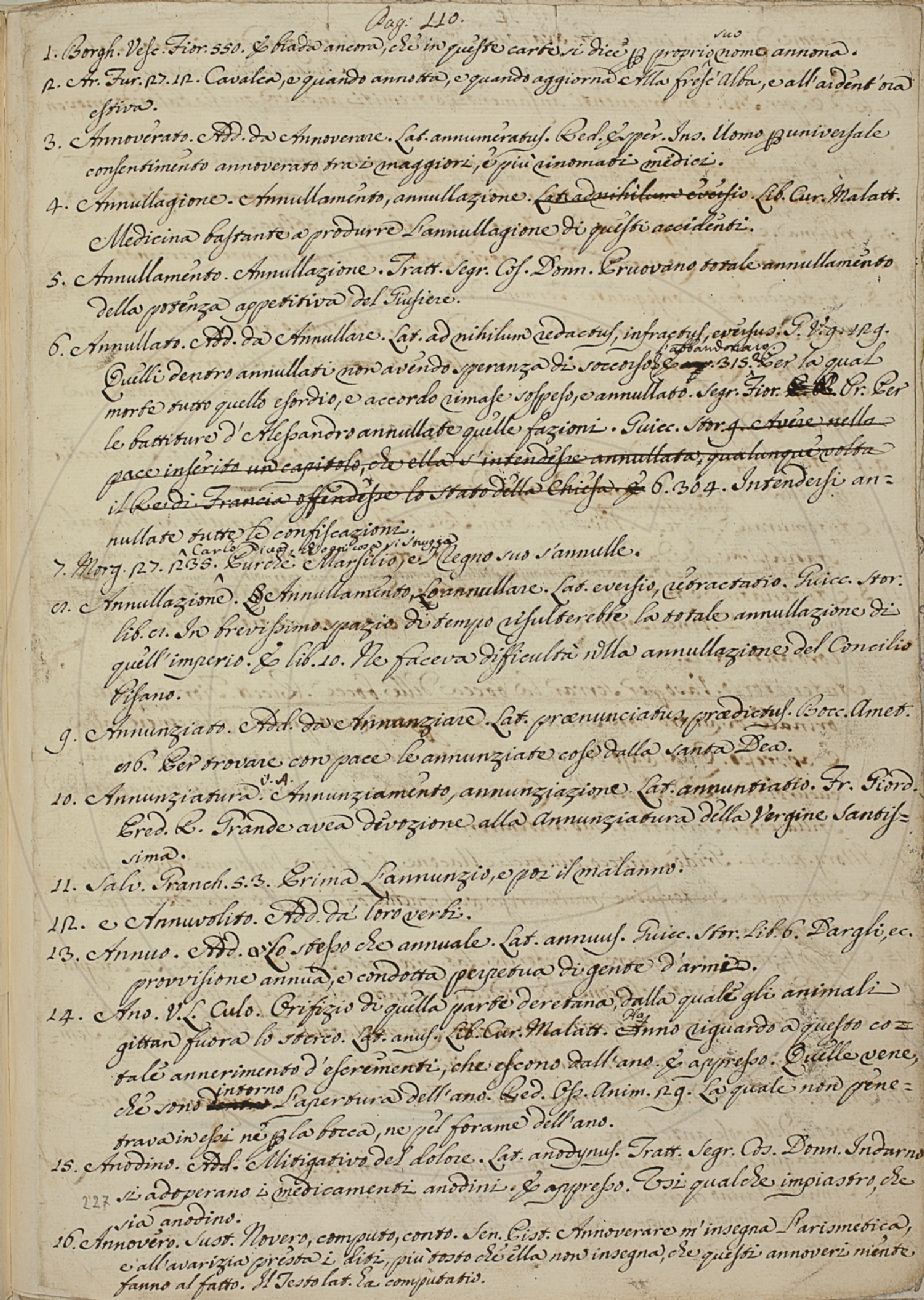 Pag: 110.
1. Borgh. Vesc. Fior. 550. E biada ancora, che in queste carte si dice p proprio suo nome annona.
2. Ar. Fur. 27. 12. Cavalca, e quando annotta, e quando aggiorna Alla fresc' Alba, e all'ardent' ora
estiva.
3. Annoverato. Add. da Annoverare. Lat. annumeratus. Red. Esper. Ins. Uomo p universale
consentimento annoverato tra i maggiori, e più rinomati medici.
4. Annullagione. Annullamento, annullazione. Lat. adnihilum eversio. Lib. Cur. Malatt.
Medicina bastante a produrre l'annullagione di questi accidenti.
5. Annullamento. Annullazione. Tratt. Segr. Cos. Donn. Pruovano totale annullamento
della potenza appetitiva del
6. Annullato. Add. da Annullare. Lat. ad nihilum redactus, infractus, eversus. G. V. 9. 129.
Quelli dentro annullati non avendo speranza di soccorso, abbandonaro 315. 2. Per la qual
morte tutto quello esordio, e accordo rimase sospeso, e annullato. Segr. Fior. Pr. Per
le battiture d'Alessandro annullate quelle fazioni. Guicc. Stor. 9. Avere nella
pace inserito un capitolo, che ella s'intendesse annullata, qualunque volta
il Re di Francia offendesse lo stato della Chiesa. E 6. 304. Intendersi an=
nullate tutte le confiscazioni.
7. Morg. 27. 235. Carlo Purché Marsilio, e 'l Regno suo s'annulle.
8. Annullazione. Annullamento, Lo annullare. Lat. eversio, retractatio. Guicc. Stor.
lib. 8. In brevissimo spazio di tempo risulterebbe la totale annullazione di
quell'imperio. E lib. 10. Ne faceva difficultà nella annullazione del Concilio
Pisano.
9. Annunziato. Add. da Annunziare. Lat. prænunciatus, prædictus. Bocc. Amet.
86. Per trovare con pace le annunziate cose dalla santa Dea.
10. Annunziatura. V. A. Annunziamento, annunziazione. Lat. annuntiatio. Fr. Giord.
Pred. R. Grande avea devozione alla Annunziatura della Vergine Santis=
sima.
11. Salv. Granch. 5. 3. Prima l'annunzio, e poi il malanno.
12. e Annuvolito. Add. da' loro verbi.
13. Annuo. Add. Lo stesso che annuale. Lat. annuus. Guicc. Stor. Lib. 6. Dargli, ec.
provvisione annua, e condotta perpetua di gente d'armi.
14. Ano. V. L. Culo. Orifizio di quella parte deretana, dalla quale gli animali
gittan fuora lo sterco. Lat. anus. Lib. Cur. Malatt. Hanno riguardo a questo co=
tale annerimento d'escrementi, che escono dall'ano. E appresso. Quelle vene,
che sono intorno l'apertura dell'ano. Red. Oss. Anim. 29. La quale non pene=
trava in essi né p la bocca, ne pel forame dell'ano.
15. Anodino. Add. Mitigativo del dolore. Lat. anodynus. Tratt. Segr. Cos. Donn. Indarno
si adoperano i medicamenti anodini. E appresso. Usi qualche impiastro, che
sia anodino.
227
16. Annovero. Sust. Novero, computo, conto. Sen. Pist. Annoverare m'insegna l'arismetica,
e all'avarizia presta i diti, più tosto che ella non insegna, che questi annoveri niente
fanno al fatto. Il Testo lat. ha computatio.